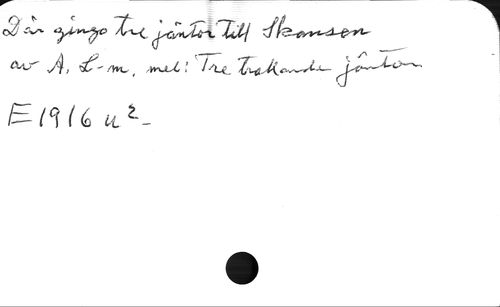 Där gingo tre jäntor till Skansen
av A. L-m. mel: Tre trallande jäntor
E 1916 u²_